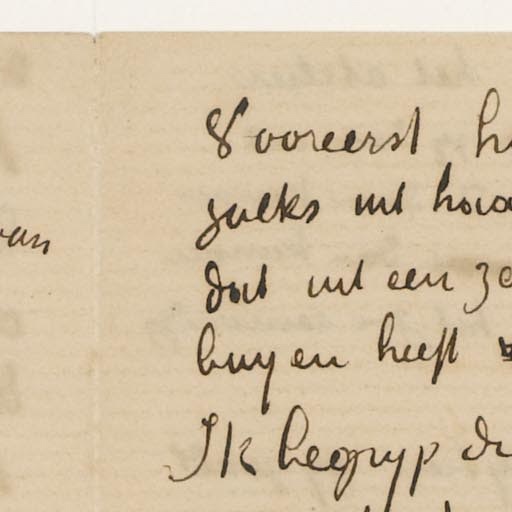 van
Vooreerst h
zulks uit hoo
dat uit een ze
buyen heeft
Ik begryp d